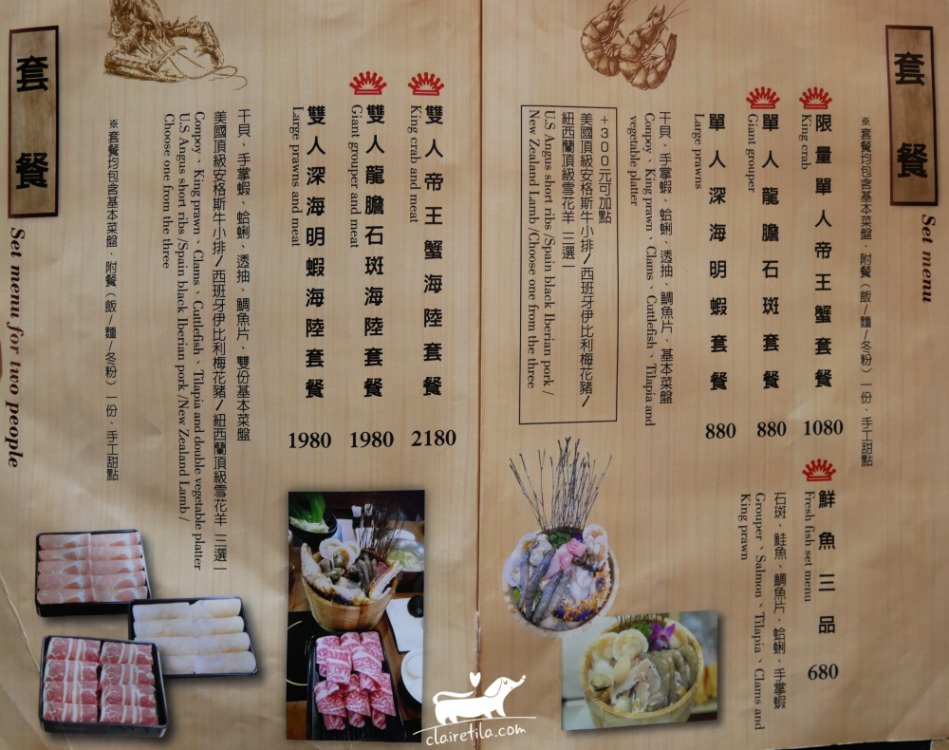 套餐
Set menu
※套餐均包含基本菜盤、附餐(飯/麵/冬粉)一份、手工甜點
限量單人帝王蟹套餐 1080
King crab
單人龍膽石斑套餐 880
Giant grouper
單人深海明蝦套餐 880
Large prawns
干貝、手掌蝦、蛤蜊、透抽、鯛魚片、基本菜盤
Conpoy、King prawn、Clams、Cuttlefish、Tilapia and
vegetable platter
+300元可加點
美國頂級安格斯牛小排/西班牙伊比利梅花豬/
紐西蘭頂級雪花羊 三選一
U.S Angus short ribs /Spain black Iberian pork /
New Zealand Lamb /Choose one from the three
鮮魚三品 680
Fresh fish set menu
石斑、鮭魚、鯛魚片、蛤蜊、手掌蝦
Grouper、Salmon、Tilapia、Clams and
King prawn
雙人帝王蟹海陸套餐 2180
King crab and meat
雙人龍膽石斑海陸套餐 1980
Giant grouper and meat
雙人深海明蝦海陸套餐 1980
Large prawns and meat
干貝、手掌蝦、蛤蜊、透抽、鯛魚片、雙份基本菜盤
美國頂級安格斯牛小排/西班牙伊比利梅花豬/紐西蘭頂級雪花羊 三選一
Conpoy、King prawn、Clams、Cuttlefish、Tilapia and double vegetable platter
U.S Angus short ribs /Spain black Iberian pork /New Zealand Lamb /
Choose one from the three
※套餐均包含基本菜盤、附餐(飯/麵/冬粉)一份、手工甜點
套餐
Set menu for two people
clairetila.com